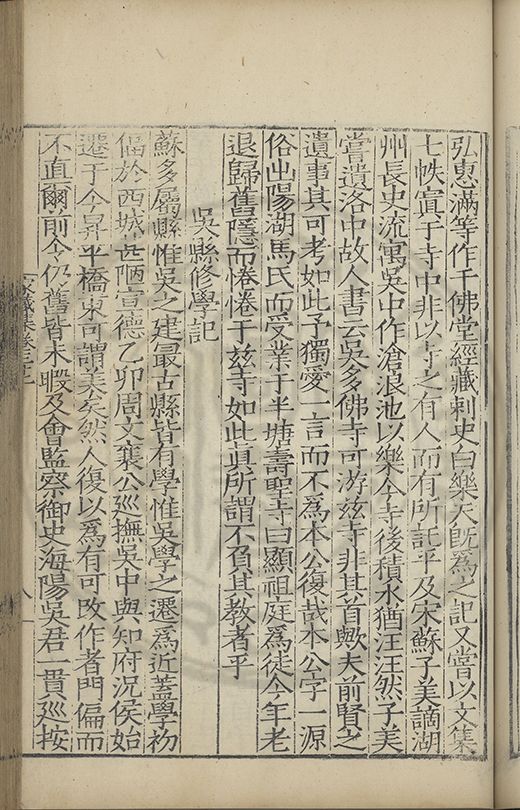 弘惠滿等作千佛堂經藏刺史白樂天旣爲之記又嘗以文集
七帙寘于寺中非以寺之有人而有所託乎及宋蘇子美謫湖
州長史流寓吳中作滄浪池以樂今寺後積水猶汪汪然子美
嘗遺洛中故人書云吳多佛寺可游兹寺非其首歟夫前賢之
遺事其可考如此予獨愛一言而不爲本公復哉本公字一源
俗出陽湖馬氏而受業于半塘壽聖寺曰顯祖庭爲徒今年老
退歸舊隱而惓惓于兹寺如此真所謂不負其教者乎
吳縣修學記
蘇多屬縣惟吳之建最古縣皆有學惟吳學之遷爲近蓋學初
偪於西城甚陋宣德乙卯周文襄公巡撫吳中與知府況侯始
遷于今昇平橋東可謂美矣然人復以爲有可改作者門偏而
不直爾前令仍舊皆未暇及會監察御史海陽吳君一貫巡按
家藏集卷三十二
八